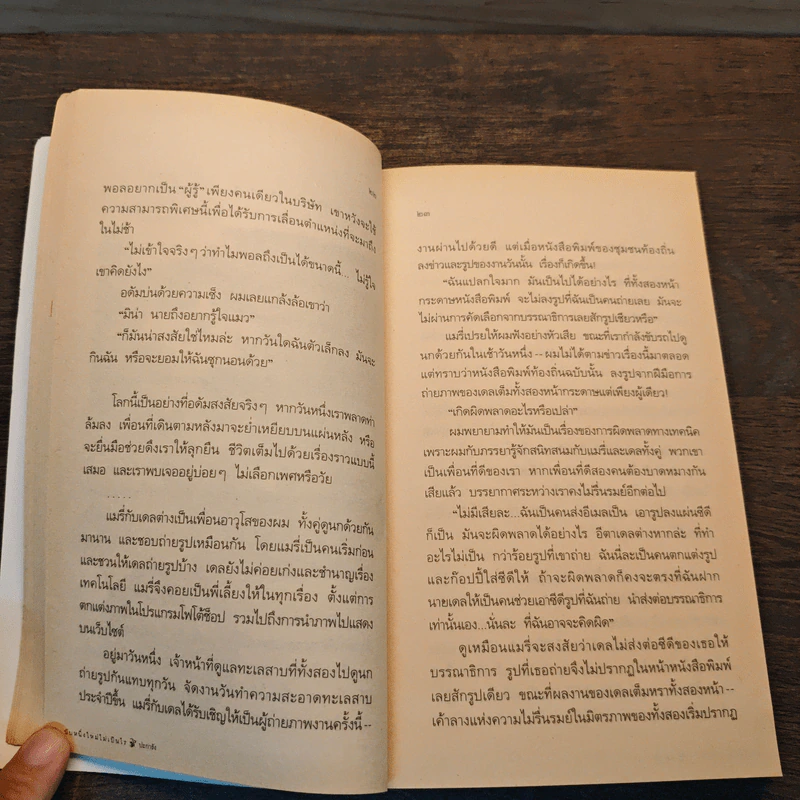 ๒๒
พอลอยากเป็น “ผู้รู้” เพียงคนเดียวในบริษัท เขาหวังจะใช้
ความสามารถพิเศษนี้เพื่อได้รับการเลื่อนตำแหน่งที่จะมาถึง
ในไม่ช้า
“ไม่เข้าใจจริงๆ ว่าทำไมพอลถึงเป็นได้ขนาดนี้... ไม่รู้ใจ
เขาคิดยังไง”
อดัมบ่นด้วยความเซ็ง ผมเลยแกล้งล้อเขาว่า
“มีน่า นายถึงอยากรู้ใจแมว”
“ก็มันน่าสงสัยใช่ไหมล่ะ หากวันใดฉันตัวเล็กลง มันจะ
กินฉัน หรือจะยอมให้ฉันซุกนอนด้วย”
โลกนี้เป็นอย่างที่อดัมสงสัยจริงๆ หากวันหนึ่งเราพลาดท่า
ล้มลง เพื่อนที่เดินตามหลังมาจะย่ำเหยียบบนแผ่นหลัง หรือ
จะยื่นมือช่วยดึงเราให้ลุกยืน ชีวิตเต็มไปด้วยเรื่องราวแบบนี้
เสมอ และเราพบเจออยู่บ่อยๆ ไม่เลือกเพศหรือวัย
.....
แมรี่กับเดลต่างเป็นเพื่อนอาวุโสของผม ทั้งคู่ดูนกด้วยกัน
มานาน และชอบถ่ายรูปเหมือนกัน โดยแมรี่เป็นคนเริ่มก่อน
และชวนให้เดลถ่ายรูปบ้าง เดลยังไม่ค่อยเก่งและชำนาญเรื่อง
เทคโนโลยี แมรี่จึงคอยเป็นพี่เลี้ยงให้ในทุกเรื่อง ตั้งแต่การ
ตกแต่งภาพในโปรแกรมโฟโต้ช็อป รวมไปถึงการนำภาพไปแสดง
บนเว็บไซต์
อยู่มาวันหนึ่ง เจ้าหน้าที่ดูแลทะเลสาบที่ทั้งสองไปดูนก
ถ่ายรูปกันแทบทุกวัน จัดงานวันทำความสะอาดทะเลสาบ
ประจำปีขึ้น แมรี่กับเดลได้รับเชิญให้เป็นผู้ถ่ายภาพงานครั้งนี้ --
ปะการัง
๒๓
งานผ่านไปด้วยดี แต่เมื่อหนังสือพิมพ์ของชุมชนท้องถิ่น
ลงข่าวและรูปของงานวันนั้น เรื่องก็เกิดขึ้น!
“ฉันแปลกใจมาก มันเป็นไปได้อย่างไร ที่ทั้งสองหน้า
กระดาษหนังสือพิมพ์ จะไม่ลงรูปที่ฉันเป็นคนถ่ายเลย มันจะ
ไม่ผ่านการคัดเลือกจากบรรณาธิการเลยสักรูปเชียวหรือ”
แมรี่เปรยให้ผมฟังอย่างหัวเสีย ขณะที่เรากำลังขับรถไปดู
นกด้วยกันในเช้าวันหนึ่ง -- ผมไม่ได้ตามข่าวเรื่องนี้มาตลอด
แต่ทราบว่าหนังสือพิมพ์ท้องถิ่นฉบับนั้น ลงรูปจากฝีมือการ
ถ่ายภาพของเดลเต็มทั้งสองหน้ากระดาษแต่เพียงผู้เดียว!
“เกิดผิดพลาดอะไรหรือเปล่า”
ผมพยายามทำให้มันเป็นเรื่องของการผิดพลาดทางเทคนิค
เพราะผมกับภรรยารู้จักสนิทสนมกับแมรี่และเดลทั้งคู่ พวกเขา
เป็นเพื่อนที่ดีของเรา หากเพื่อนที่ดีสองคนต้องบาดหมางกัน
เสียแล้ว บรรยากาศระหว่างเราคงไม่รื่นรมย์อีกต่อไป
“ไม่มีเสียละ...ฉันเป็นคนส่งอีเมลเป็น เอารูปลงแผ่นซีดี
ก็เป็น มันจะผิดพลาดได้อย่างไร อีตาเดลต่างหากล่ะ ที่ทำ
อะไรไม่เป็น กว่าร้อยรูปที่เขาถ่าย ฉันนี่ละเป็นคนตกแต่งรูป
และก๊อปปี้ใส่ซีดีให้ ถ้าจะผิดพลาดก็คงจะตรงที่ฉันฝาก
นายเดลให้เป็นคนช่วยเอาซีดีรูปที่ฉันถ่าย นำส่งต่อบรรณาธิการ
เท่านั้นเอง...นั่นละ ที่ฉันอาจจะคิดผิด”
ดูเหมือนแมรี่จะสงสัยว่าเดลไม่ส่งต่อซีดีของเธอให้
บรรณาธิการ รูปที่เธอถ่ายจึงไม่ปรากฏในหน้าหนังสือพิมพ์
เลยสักรูปเดียว ขณะที่ผลงานของเดลเต็มหราทั้งสองหน้า --
เค้าลางแห่งความไม่รื่นรมย์ในมิตรภาพของทั้งสองเริ่มปรากฏ